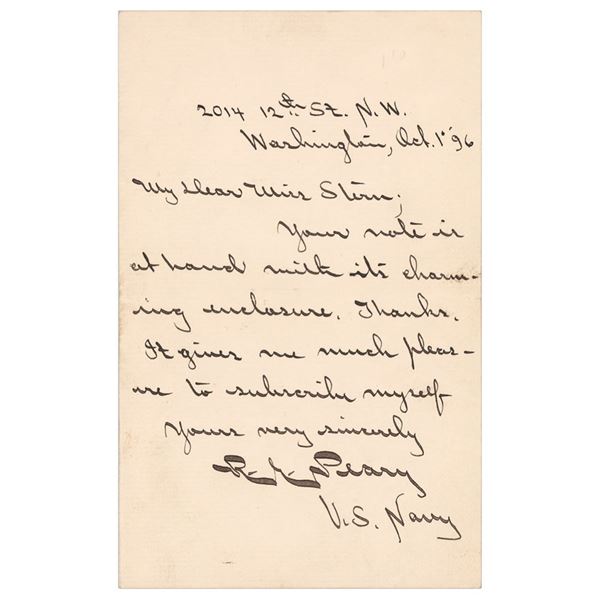 2014 12th St. N.W.
Washington, Oct. 1st 96
My dear Miss Stern;
Your note is
at hand with its charm-
ing enclosure. Thanks.
It gives me much pleas-
ure to subscribe myself
Yours very sincerely
R. E. Peary
U.S. Navy